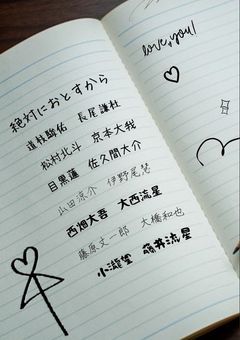 絶対におとすから
道枝駿佑 長尾謙杜
松村北斗 京本大我
目黒蓮 佐久間大介
山田涼介 伊野尾慧
西畑大吾 大西流星
藤原丈一郎 大橋和也
小瀧望 藤井流星
love you!